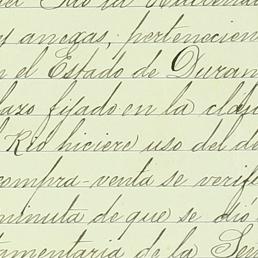 y anexas, pertenecien
n el Estado de Duran
lazo fijado en la cláu
Rio hiciere uso del de
compra-venta se verifi
minuta de que se dió
tamentaria de la Señ